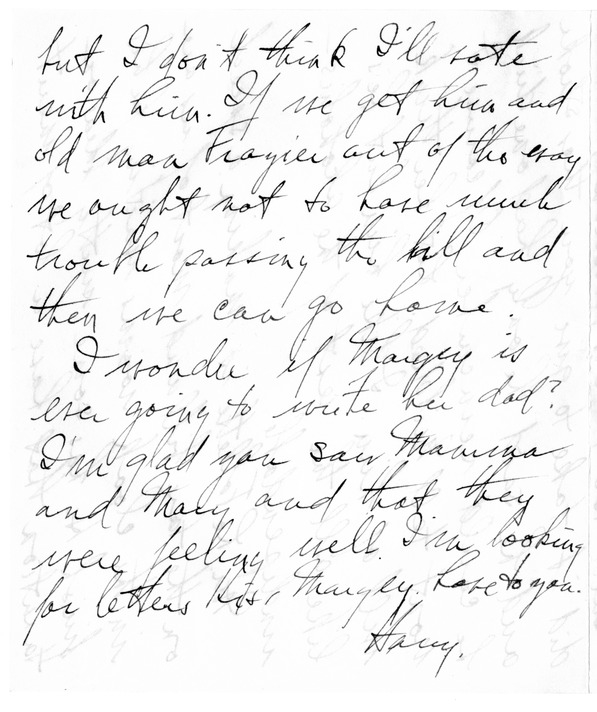 but I don't think I'll vote
with him. If we get him and
old man Frazier out of the way
we ought not to have much
trouble passing the bill and
then we can go home.
I wonder if Margey is
ever going to write her dad?
I'm glad you saw Mamma
and Mary and that they
were feeling well. I'm looking
for letters Kiss Margey. Love to you.
Harry.